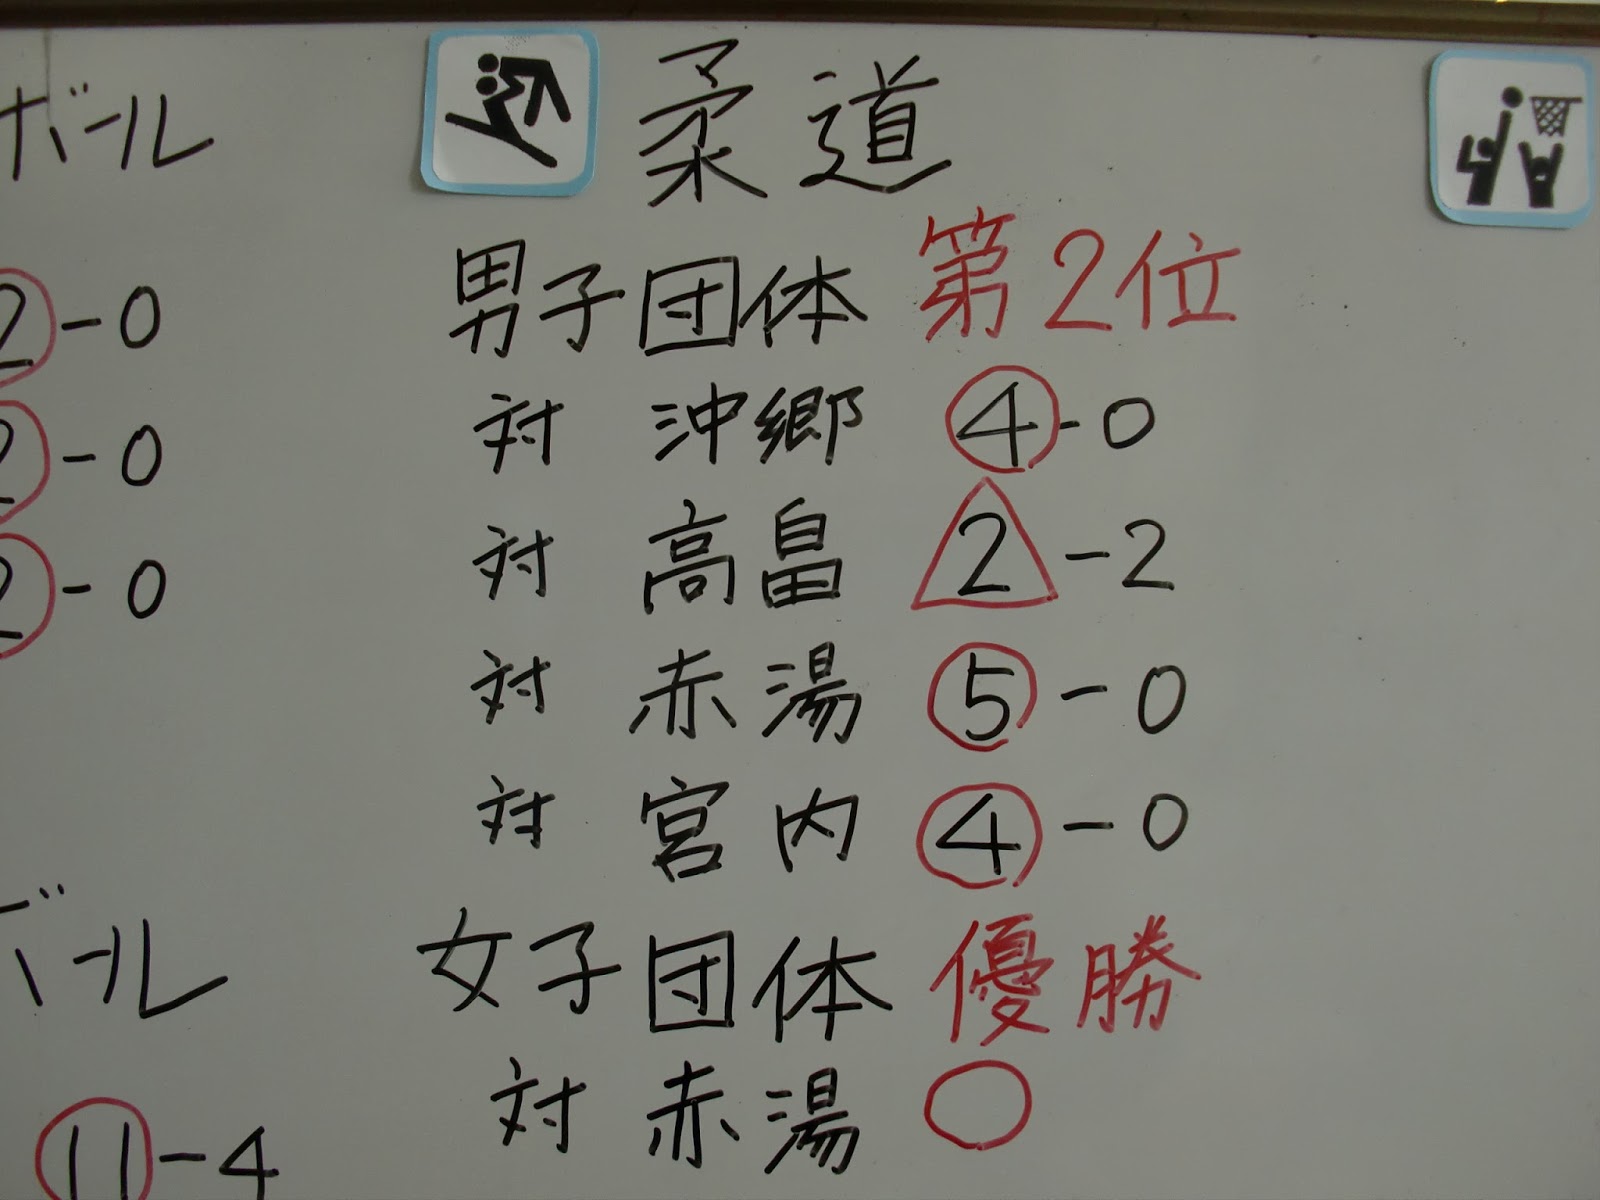 ボール
2-0
2-0
2-0
柔道
男子団体 第2位
対 沖郷 ④-0
対 高畠 2-2
対 赤湯 ⑤-0
対 宮内 ④-0
女子団体 優勝
対 赤湯 ○
ボール
⑪-4